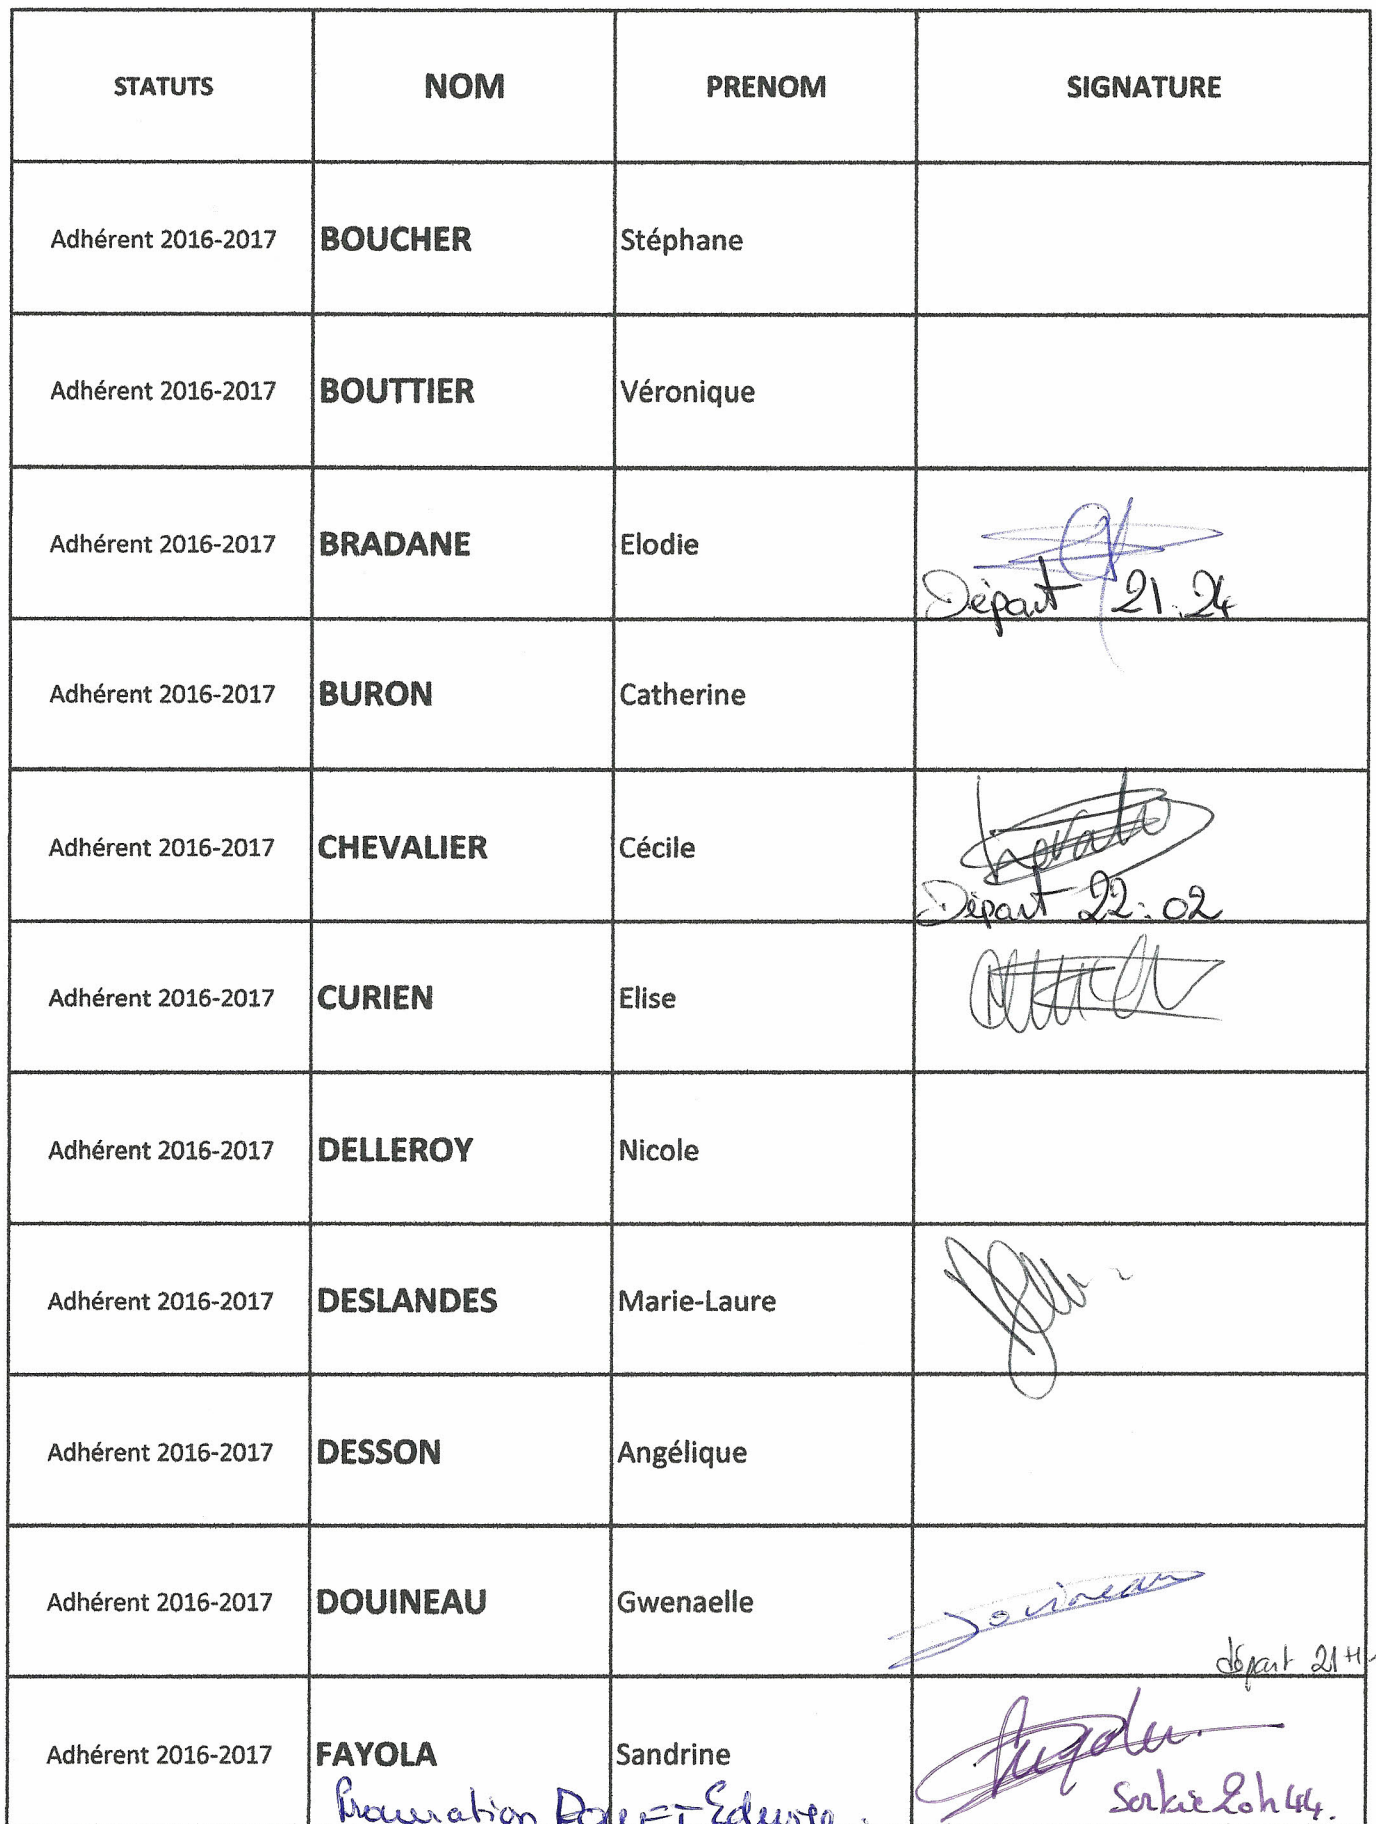 STATUTS NOM PRENOM SIGNATURE
Adhérent 2016-2017 BOUCHER Stéphane
Adhérent 2016-2017 BOUTTIER Véronique
Adhérent 2016-2017 BRADANE Elodie
Départ 21.24
Adhérent 2016-2017 BURON Catherine
Adhérent 2016-2017 CHEVALIER Cécile
Départ 22:02
Adhérent 2016-2017 CURIEN Elise
Adhérent 2016-2017 DELLEROY Nicole
Adhérent 2016-2017 DESLANDES Marie-Laure
Adhérent 2016-2017 DESSON Angélique
Adhérent 2016-2017 DOUINEAU Gwenaelle Douineau
départ 21H
Adhérent 2016-2017 FAYOLA Sandrine
Sortie 20h44.
Procuration